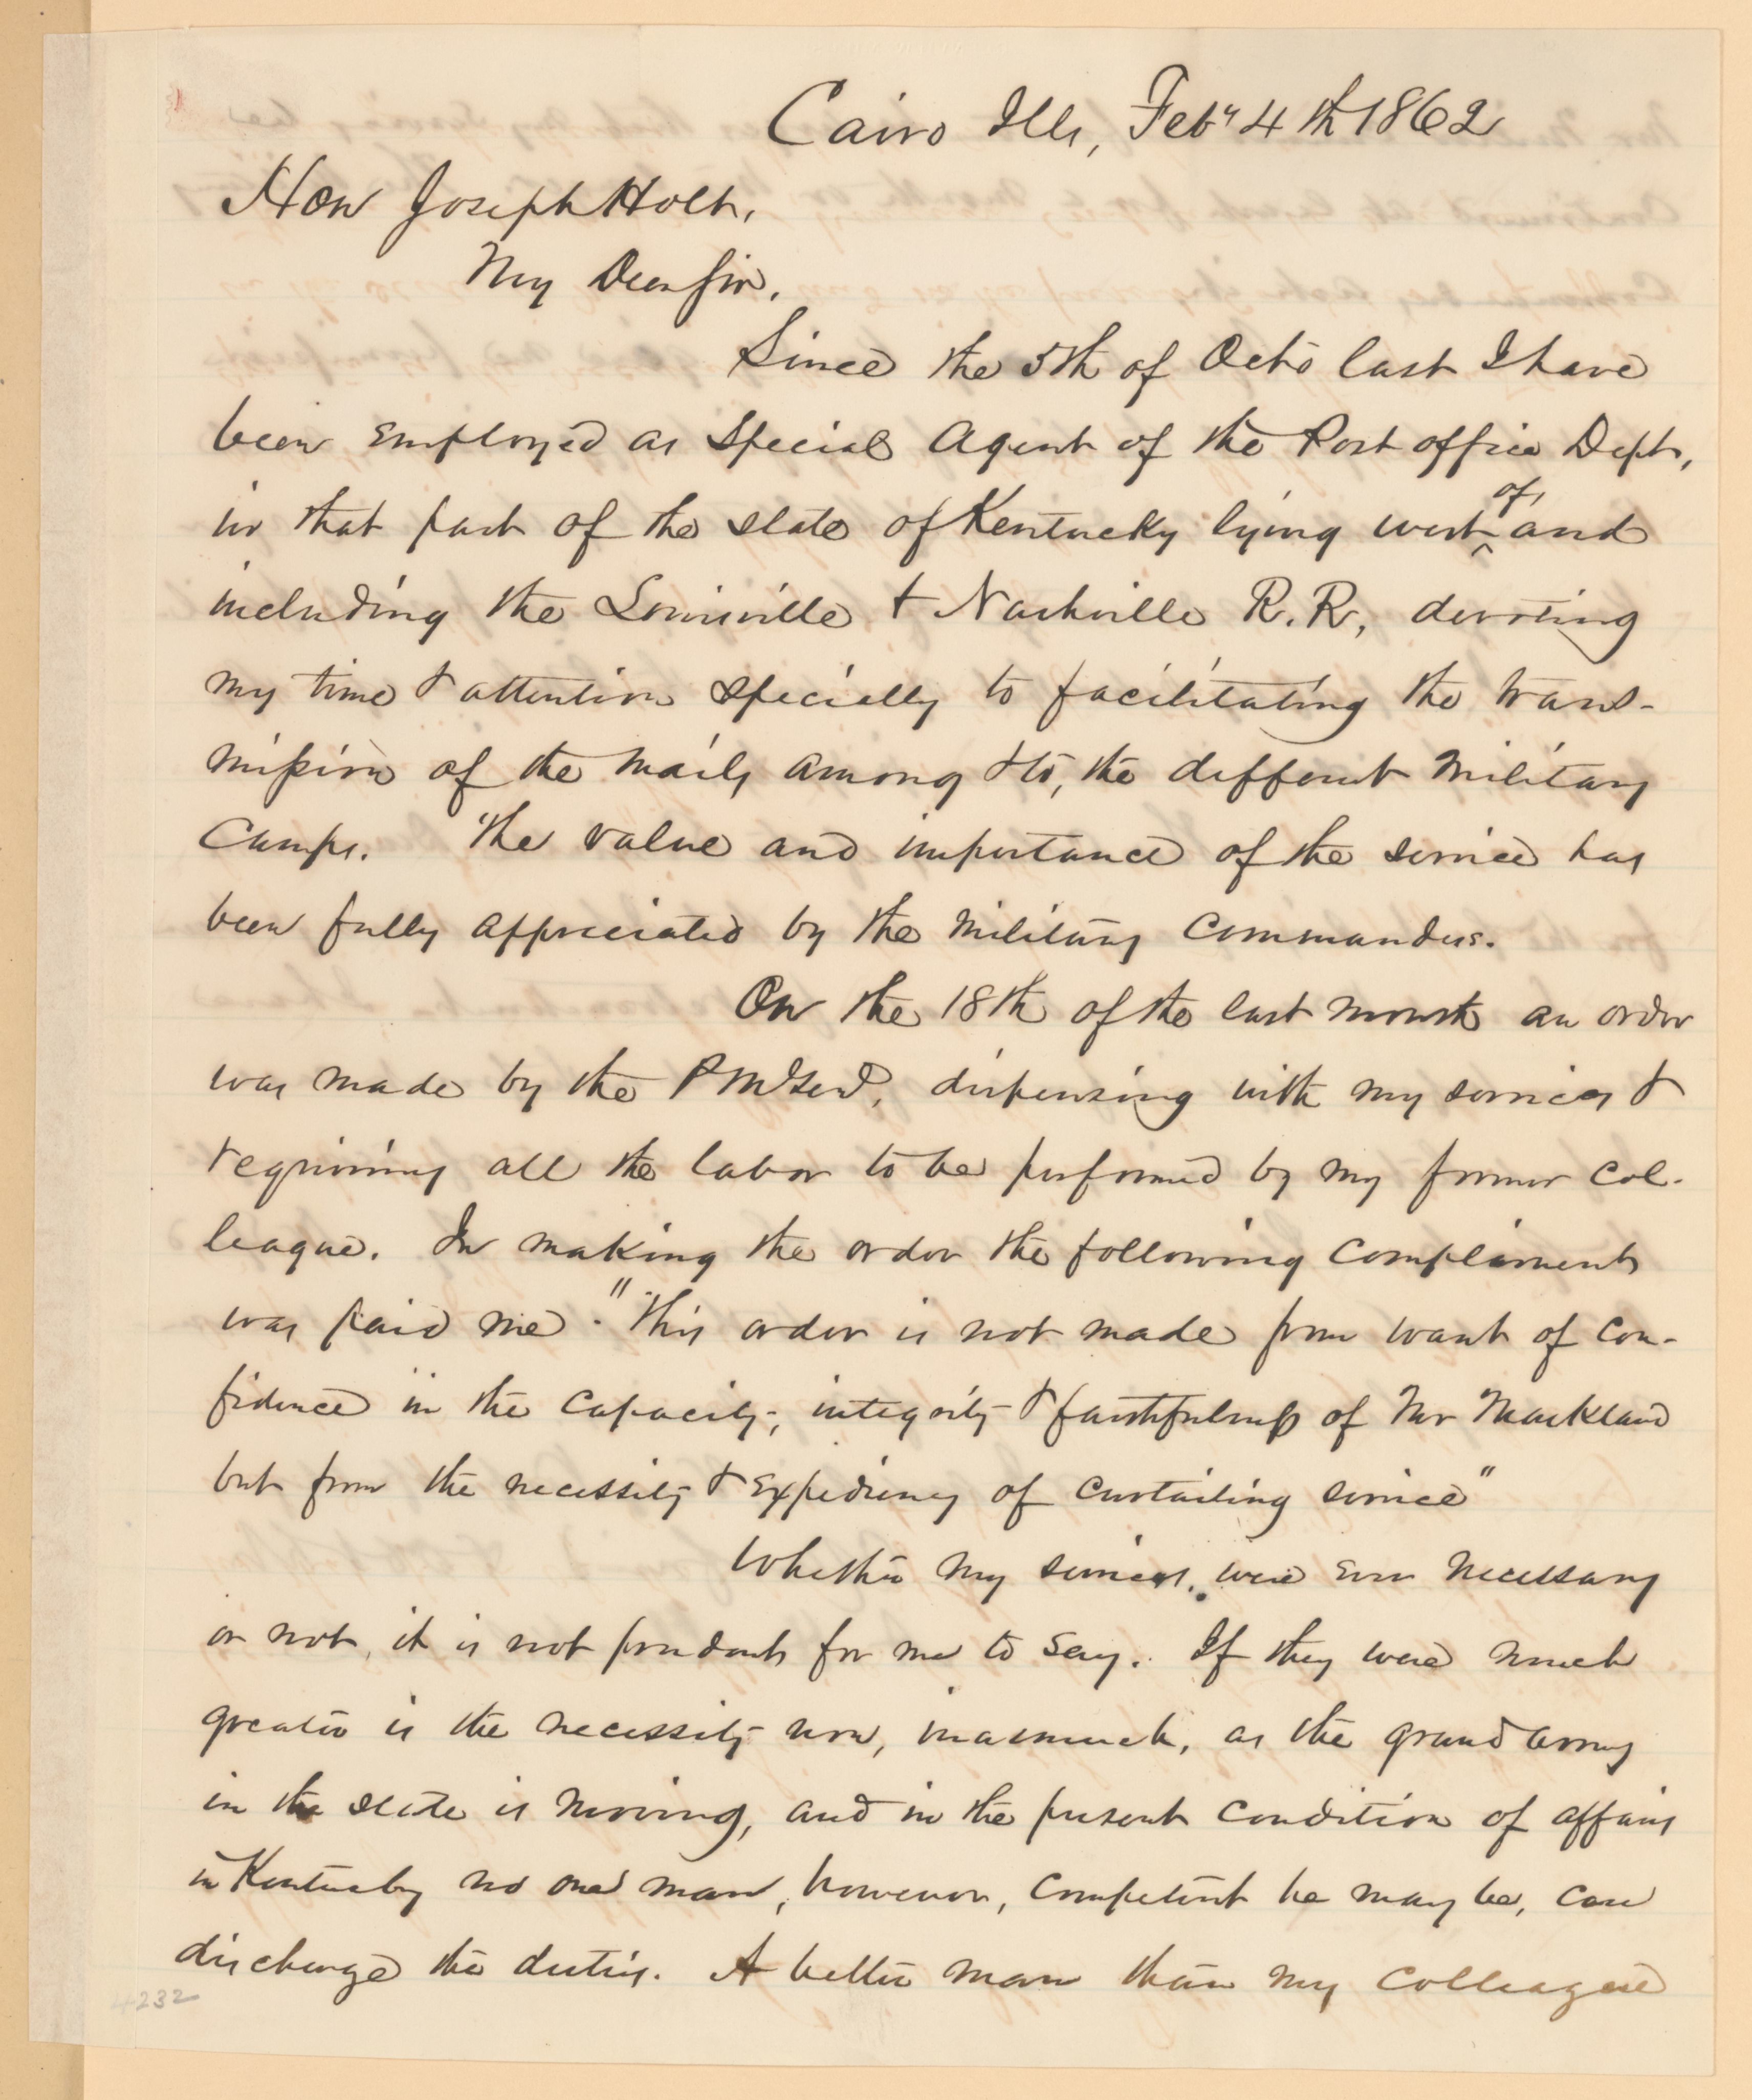 Cairo Ills, Feby 4th 1862
Hon Joseph Holt,
My Dear Sir,
Since the 5th of Octo last I have
been employed as Special Agent of the Post office Dept,
in that part of the state of Kentucky lying west of, and
including the Louisville & Nashville R. R, devoting
my time & attention specially to facilitating the trans-
mission of the mails among & to, the different Military
Camps. The value and importance of the service has
been fully appreciated by the Military Commanders.
On the 18th of the last month an order
was made by the P M Genl, dispensing with my services &
requiring all the labor to be performed by my former col-
league. In making the order the following compliment
was paid me. "This order is not made from want of con-
fidence in the capacity, integrity & faithfulness of Mr Markland
but from the necessity & expediency of curtailing service"
Whether my services, were ever necessary
or not, it is not prudent for me to say. If they were much
greater is the necessity now, inasmuch, as the grand army
in the state is moving, and in the present condition of affairs
in Kentucky no one man, however, competent he may be, can
discharge the duties. A better man than my colleague
4232